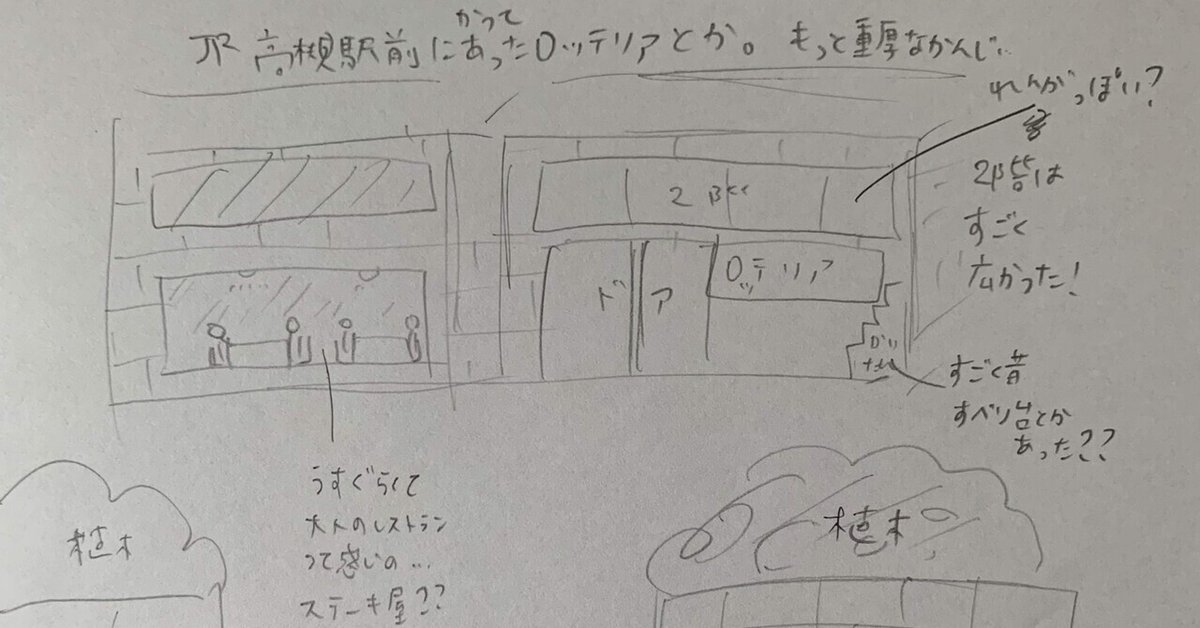 かつて
JR 高槻駅前にあったロッテリアとか。もっと重厚なかんじ..
れんがっぽい?
2階は
すごく
広かった!
2階
ロッテリア
ドア
すごく昔
すべり台とか
あった??
うすぐらくて
大人のレストラン
って感じの...
ステーキ屋??
植木
植木